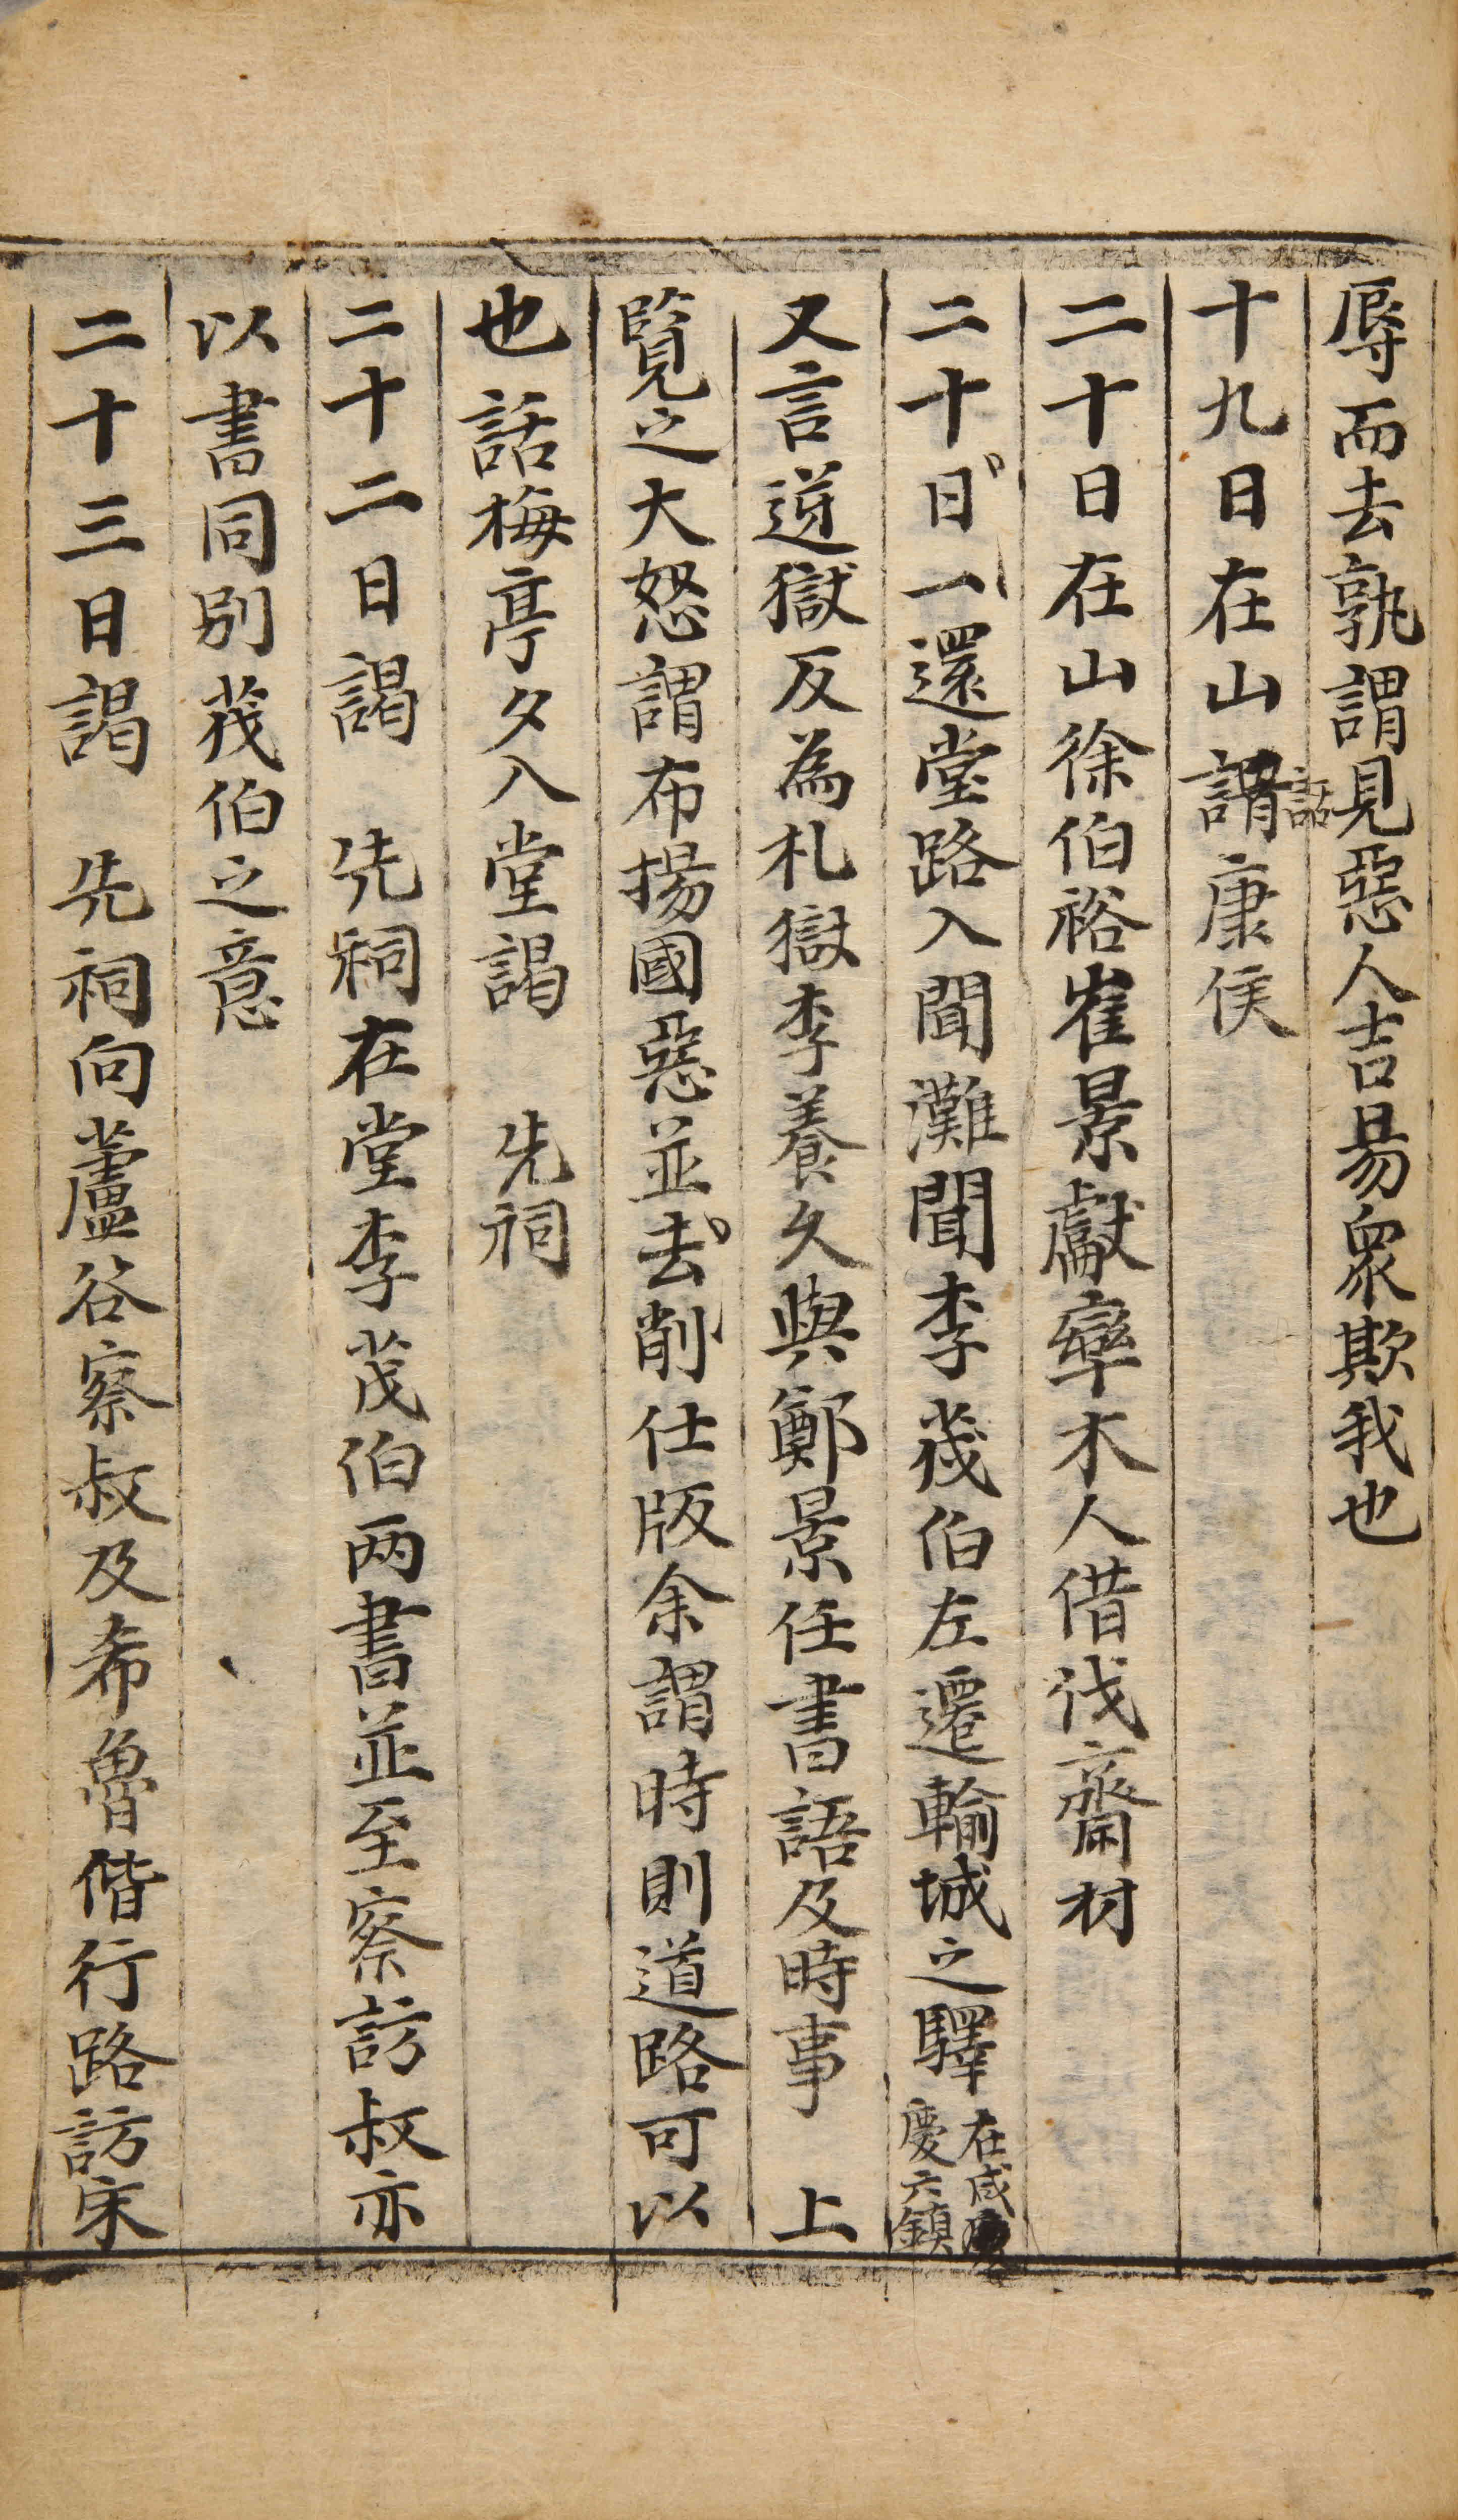 辱而去孰謂見惡人吉易衆欺我也
十九日在山謂話康侯
二十日在山徐伯裕崔景獻率木人借伐齋材
二十日一還堂路入聞灘聞李茂伯左遷輸城之驛在咸慶六鎮
又言逆獄反為札獄李養久與鄭景任書語及時事　上
覧之大怒謂布揚國惡並去削仕版余謂時則道路可以
也話梅亭夕入堂謁　先祠
二十二日謁　先祠在堂李茂伯两書並至察訪叔亦
以書同别茂伯之意
二十三日謁　先祠向蘆谷察叔及希魯偕行路訪宋